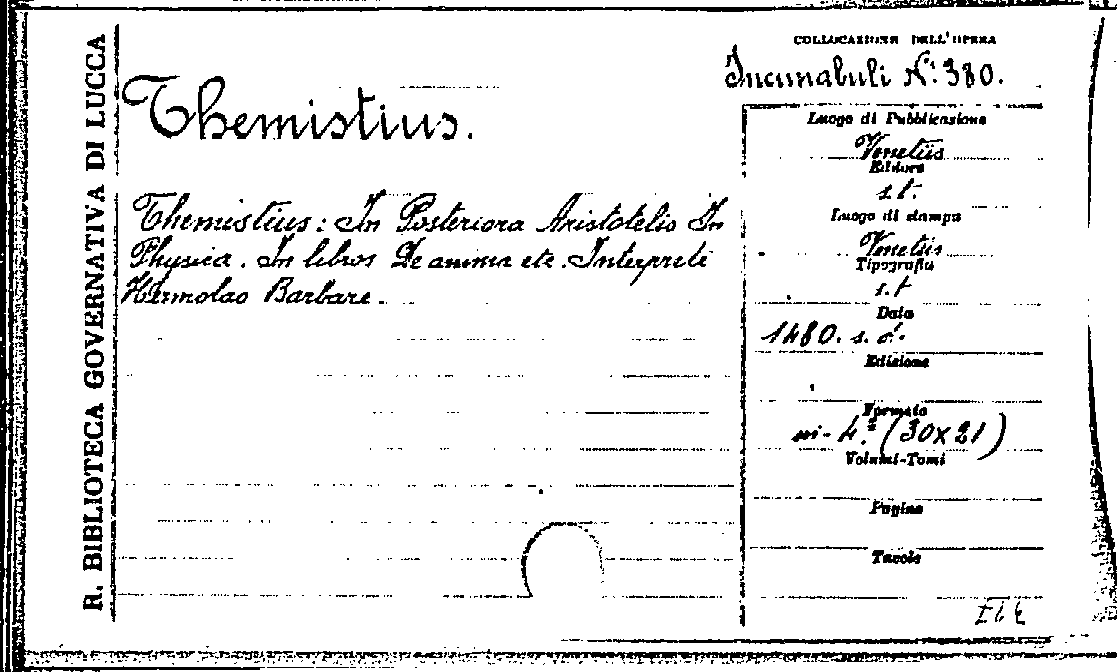 R. BIBLIOTECA GOVERNATIVA DI LUCCA
Themistius.
Themistius: In Posteriora Aristotelis In
Physica. In libros De anima etc. Interprete
Hermolao Barbare.
COLLOCAZIONE DELL'OPERA
Incunabuli N.º 380.
Luogo di Pubblicazione
Venetiis
Editore
s.t.
Luogo di stampa
Venetiis
Tipografia
s.t
Data
1480. s. d.
Edizione
Formato
in-4.º (30x21)
Volumi-Tomi
Pagine
Tavole